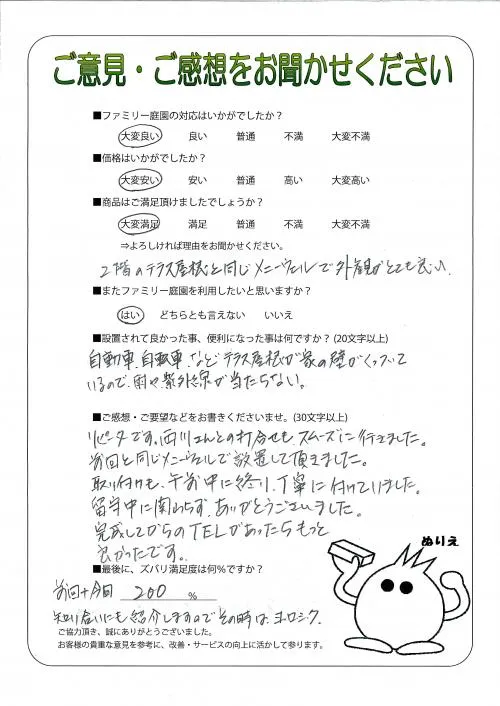 ご意見・ご感想をお聞かせください
■ファミリー庭園の対応はいかがでしたか？
大変良い 良い 普通 不満 大変不満
■価格はいかがでしたか？
大変安い 安い 普通 高い 大変高い
■商品はご満足頂けましたでしょうか？
大変満足 満足 普通 不満 大変不満
⇒よろしければ理由をお聞かせください。
2階のテラス屋根と同じメニーウェルで外観がとても良い。
■またファミリー庭園を利用したいと思いますか？
はい どちらとも言えない いいえ
■設置されて良かった事、便利になった事は何ですか？(20文字以上)
自動車、自転車、などテラス屋根が家の壁がくっついて
いるので、雨や紫外線が当たらない。
■ご感想・ご要望などをお書きくださいませ。(30文字以上)
リピータです。西川さんとの打合せも、スムーズに行きました。
前回と同じメニーウェルで設置して頂きました。
取り付けも、午前中に終り、丁寧に付けていました。
留守中に関わらず、ありがとうございました。
完成してからのTELがあったらもっと
良かったです。
ぬりえ
■最後に、ズバリ満足度は何％ですか？
前回+今回 200 %
知り合いにも紹介しますのでその時は、ヨロシク。
ご協力頂き、誠にありがとうございました。
お客様の貴重な意見を参考に、改善・サービスの向上に活かして参ります。